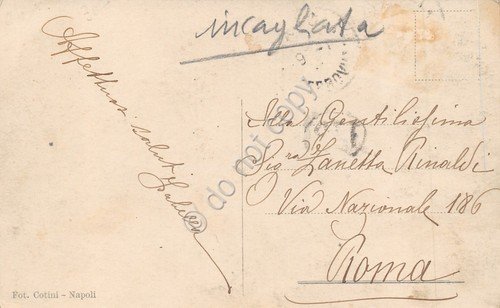 incagliata
Affettuosi saluti
Alla Gentilissima
Sig.ra Zanetta Rinaldi
Via Nazionale 186
Roma
Fot. Cotini - Napoli
do not copy